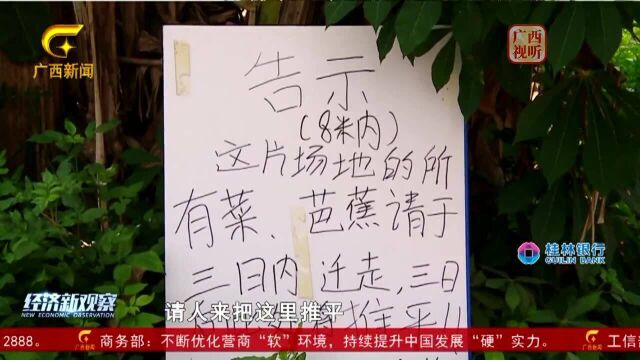 广西新闻
广西
视听
告示
(8米内)
这片场地的所
有菜、芭蕉请于
三日内迁走,三日
推平
桂林银行
GUILIN BANK
经济新观察
NEW ECONOMIC OBSERVATION
请人来把这里推平
2888。 商务部：不断优化营商“软”环境，持续提升中国发展“硬”实力。 工信